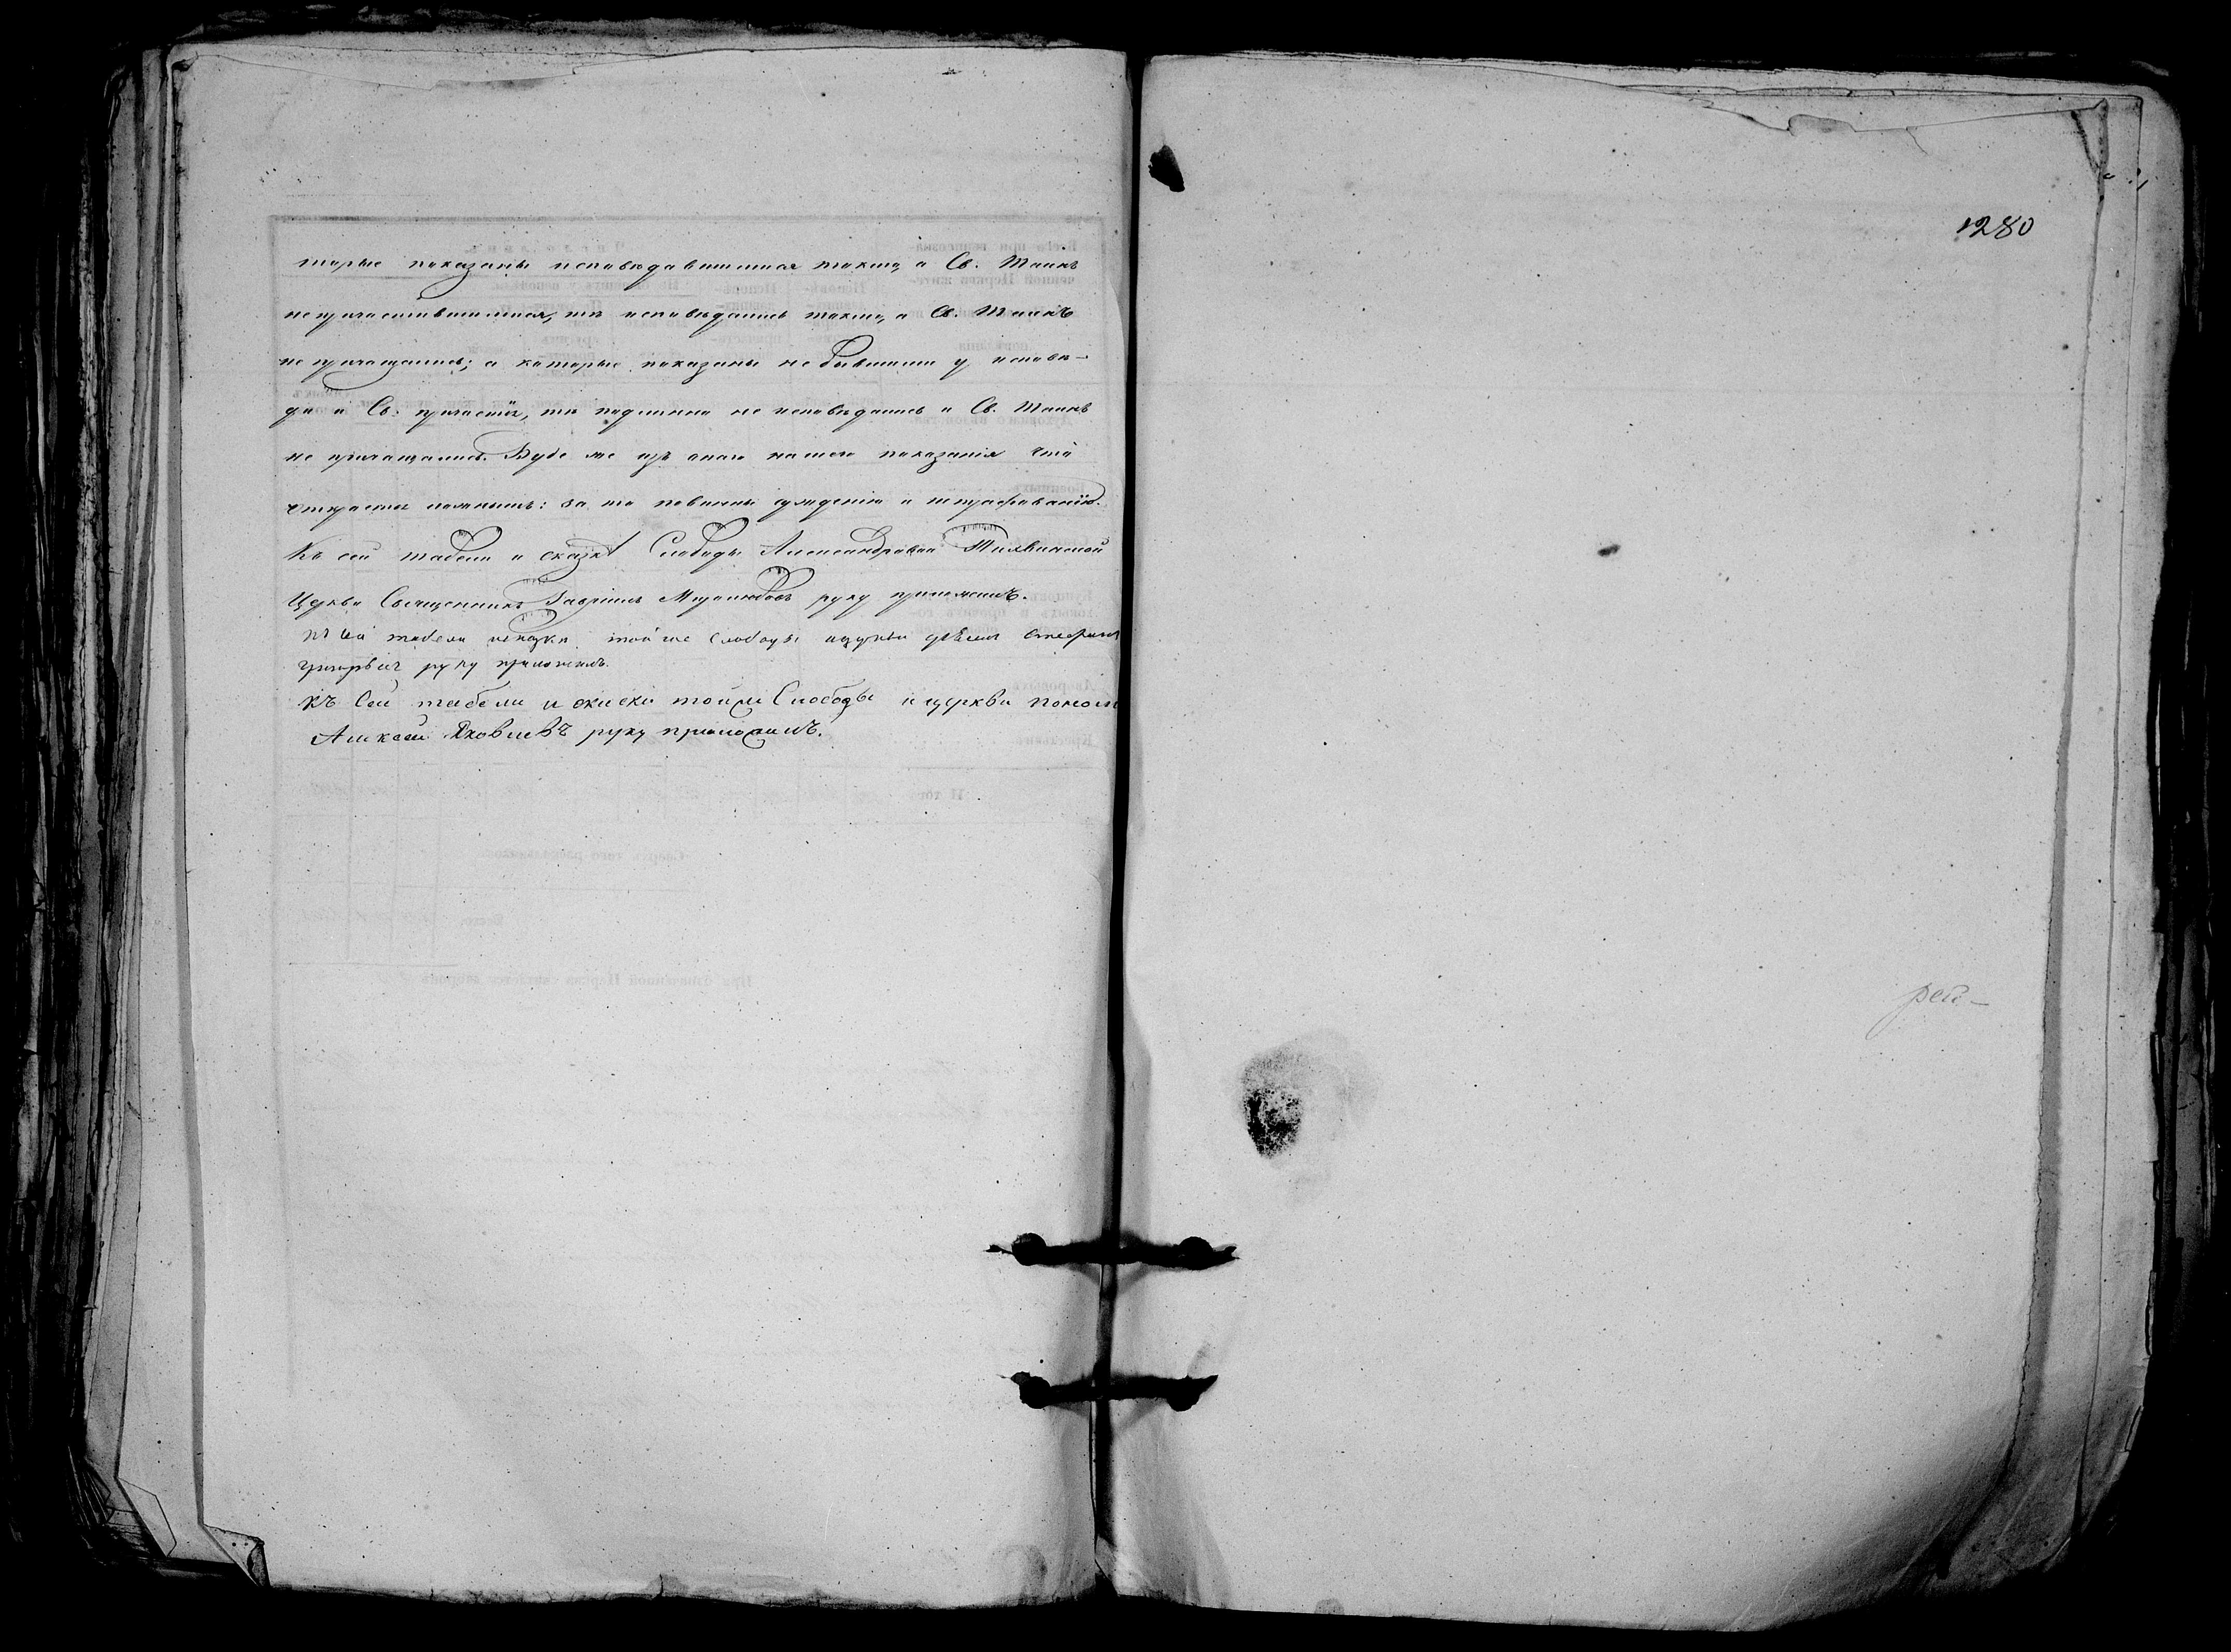 торые показаны исповѣдавшимися токмо, а Св. Таинъ
не причастившимися, тѣ исповѣдались токмо, а Св. Таинъ
не причащались; а которые показаны не бывшими у исповѣ-
ди и Св: причастія, тѣ подлинно не исповѣдались и Св. Таинъ
не причащались. Буде же изъ онаго нашего показанія что
откроется ложнымъ: за то повинны сужденію и штрафованію.
Къ сей табели и сказкѣ Слободы Александровки Тихвинской
Церкви Священникъ Гавріилъ руку приложилъ.
Къ сей табели и сказки той же слободы и церкви руку приложилъ.
къ Сей табели и скаски тойже Слободы и церкви поном
Алексей Яковлевъ руку приложилъ.
1280